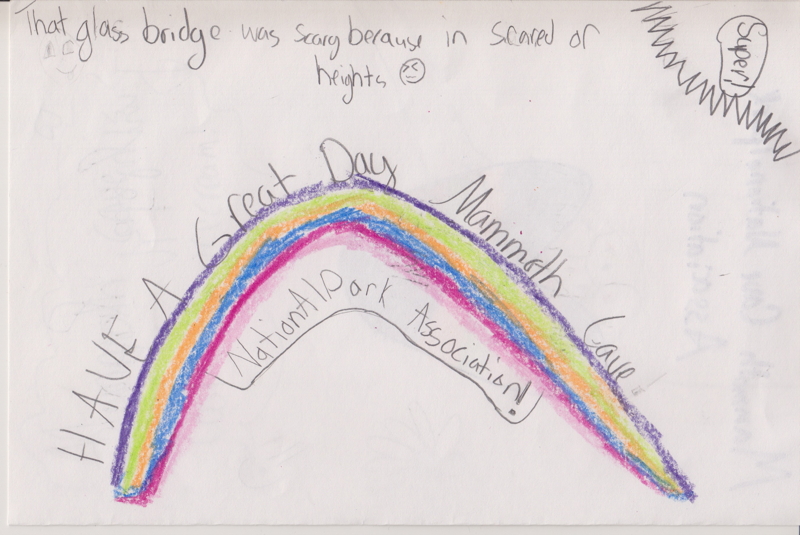 That glass bridge was scary because in scared of
heights
Super!
HAVE A Great Day Mammoth Cave
NationAl Park Association!